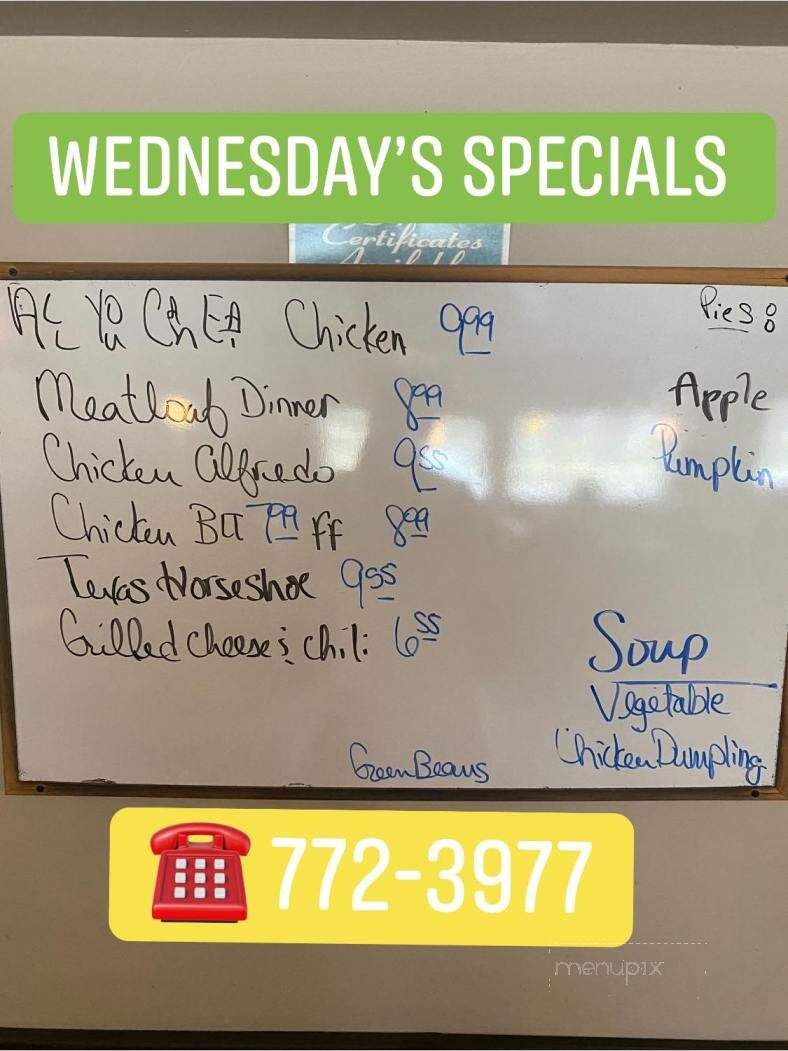 WEDNESDAY'S SPECIALS
Certificates
Available
ALL YOU CAN EAT Chicken 9.99
Meatloaf Dinner 8.99
Chicken Alfredo 9.55
Chicken BLT 7.99 ff 8.99
Texas Horseshoe 9.55
Grilled cheese & chili 6.55
Pies:
Apple
Pumpkin
Soup
Vegetable
Chicken Dumpling
Green Beans
772-3977
menupix